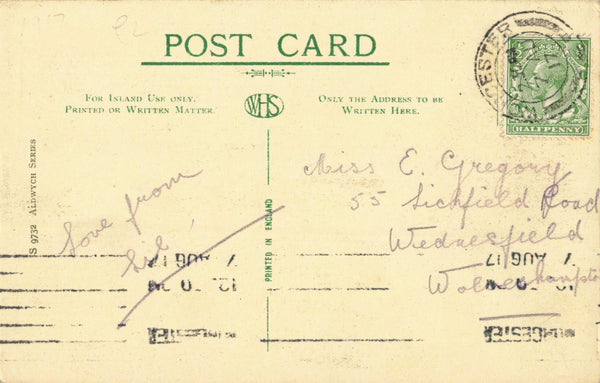 1917
POST CARD
FOR INLAND USE ONLY.
PRINTED OR WRITTEN MATTER.
WHS
ONLY THE ADDRESS TO BE
WRITTEN HERE.
HALFPENNY
S 9732 ALDWYCH SERIES
PRINTED IN ENGLAND
Love from
Sib
Miss E. Gregory
55 Lichfield Road
Wednesfield
Wolverhampton
7 AUG 17
7 AUG 17